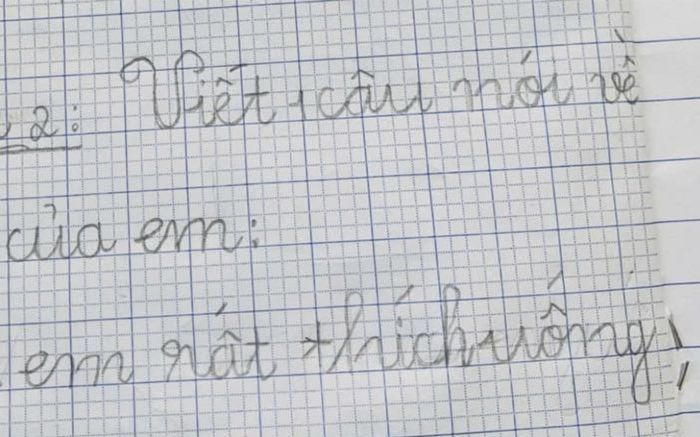 2: Viết 1 câu nói về
của em:
em rất thích uống